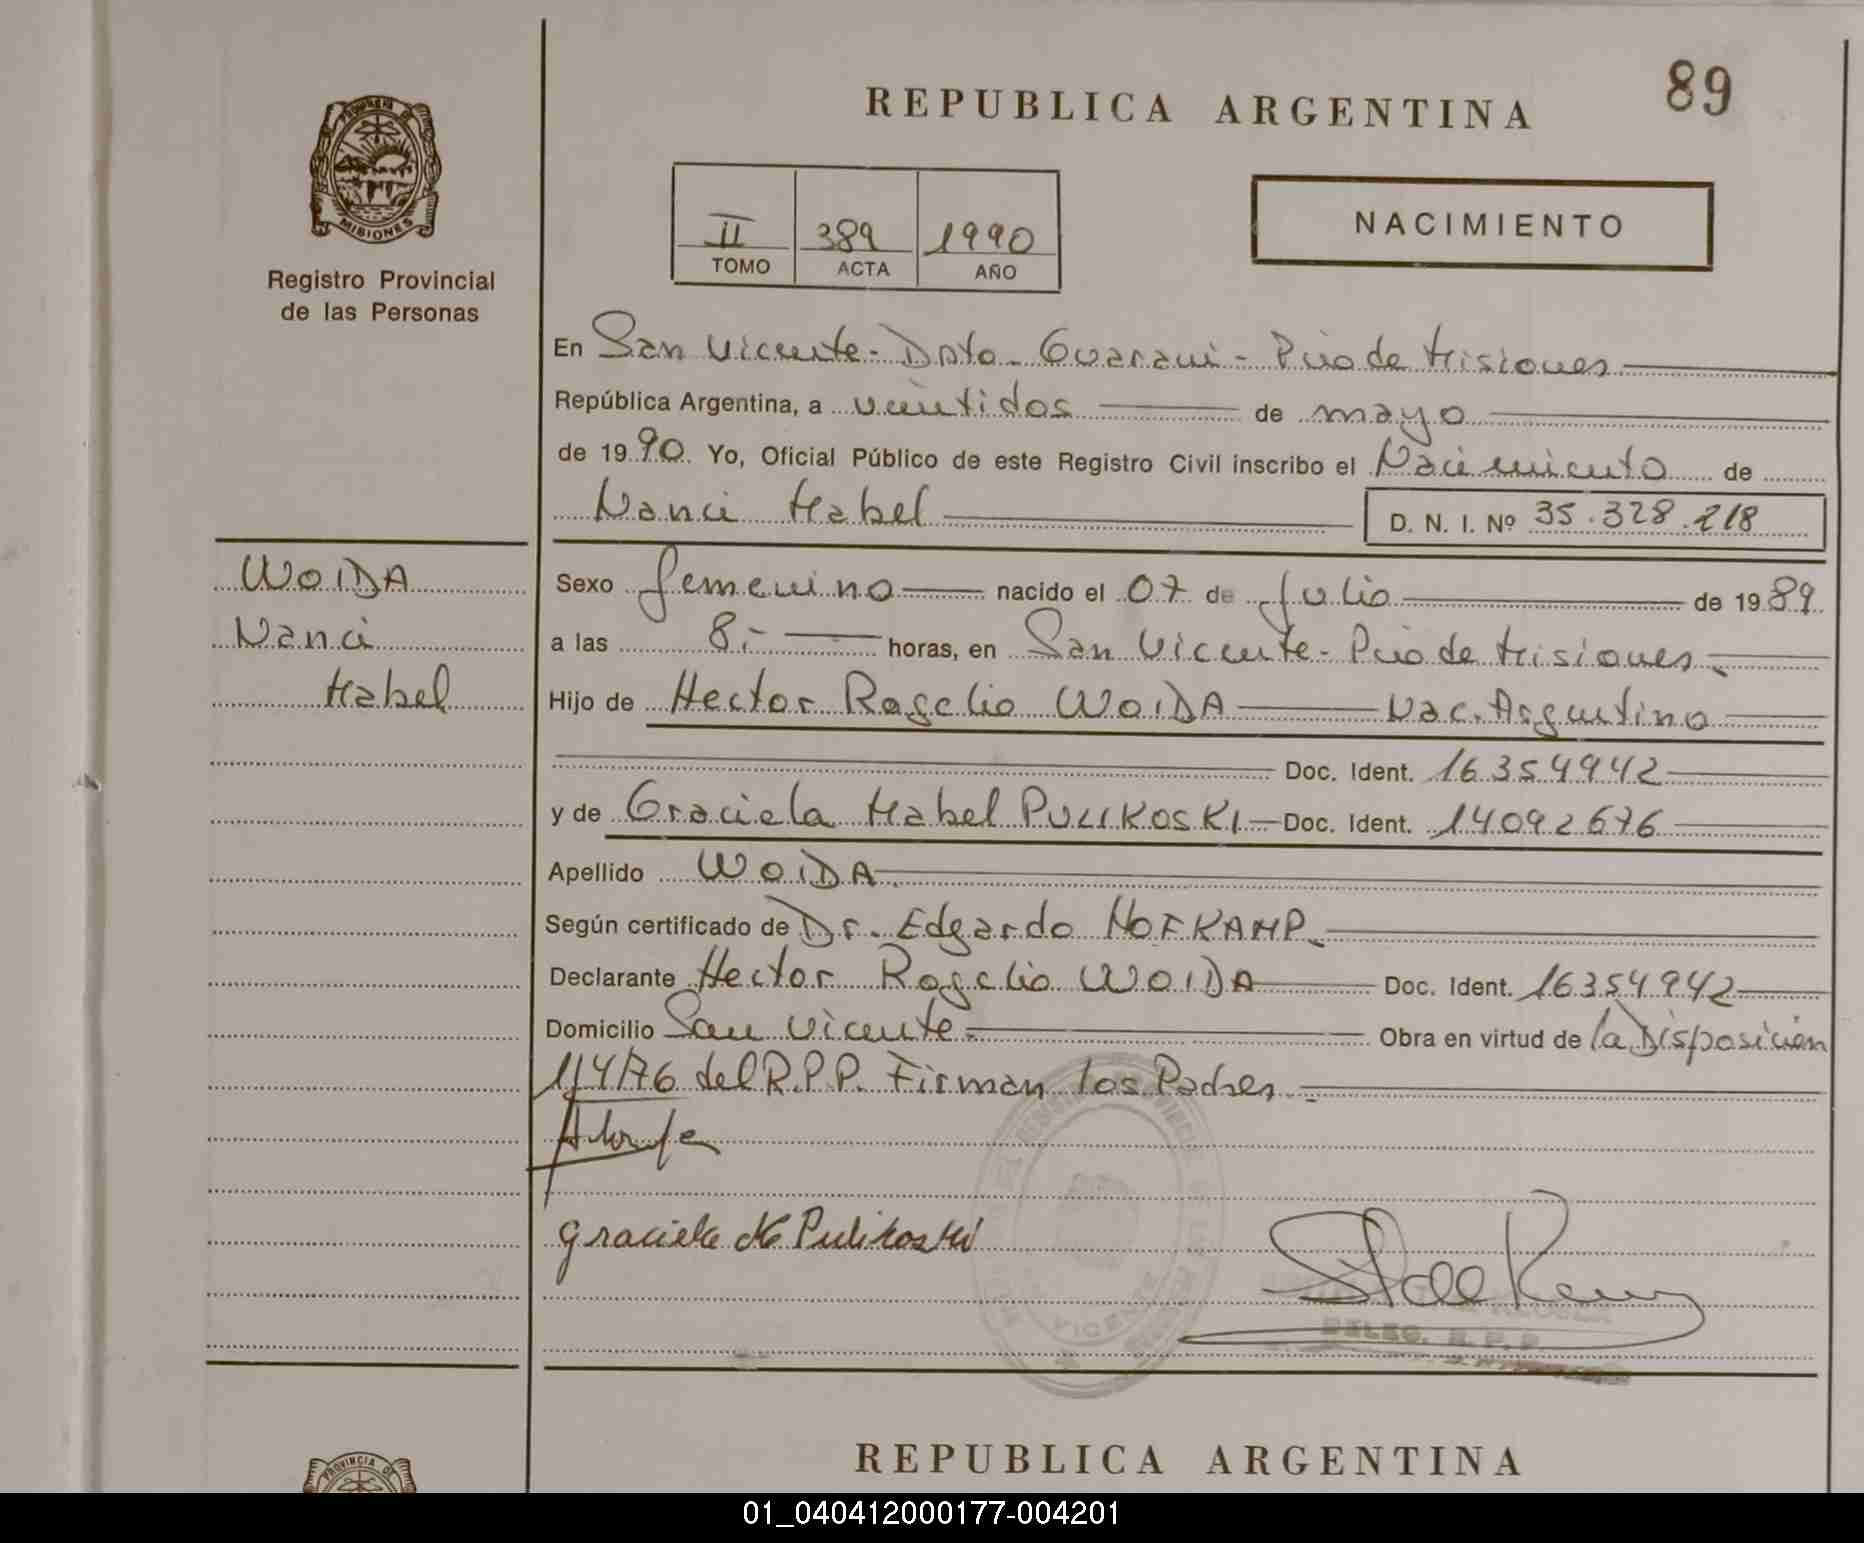 89
REPUBLICA ARGENTINA
PROVINCIA DE
MISIONES
Registro Provincial
de las Personas
II 389 1990
TOMO ACTA AÑO
NACIMIENTO
En San Vicente - Dpto - Guarani - Pcia de Misiones
República Argentina, a veintidos de mayo
de 1990. Yo, Oficial Público de este Registro Civil inscribo el Nacimiento de
Nanci Mabel D. N. I. Nº 35.328.218
WOIDA
Nanci
Mabel
Sexo femenino nacido el 07 de Julio de 1989
a las 8.- horas, en San Vicente - Pcia de Misiones.
Hijo de Hector Rogelio WOIDA Nac. Argentino
Doc. Ident. 16354942
y de Graciela Mabel PULIKOSKI Doc. Ident. 14092676
Apellido WOIDA
Según certificado de Dr. Edgardo HOFKAMP.
Declarante Hector Rogelio WOIDA Doc. Ident. 16354942
Domicilio San Vicente. Obra en virtud de la Disposición
114/76 del R.P.P. Firman los Padres.
Graciela M Pulikoski
DELEG. R. P. P.
VICENTE
PROVINCIA DE
REPUBLICA ARGENTINA
01_040412000177-004201